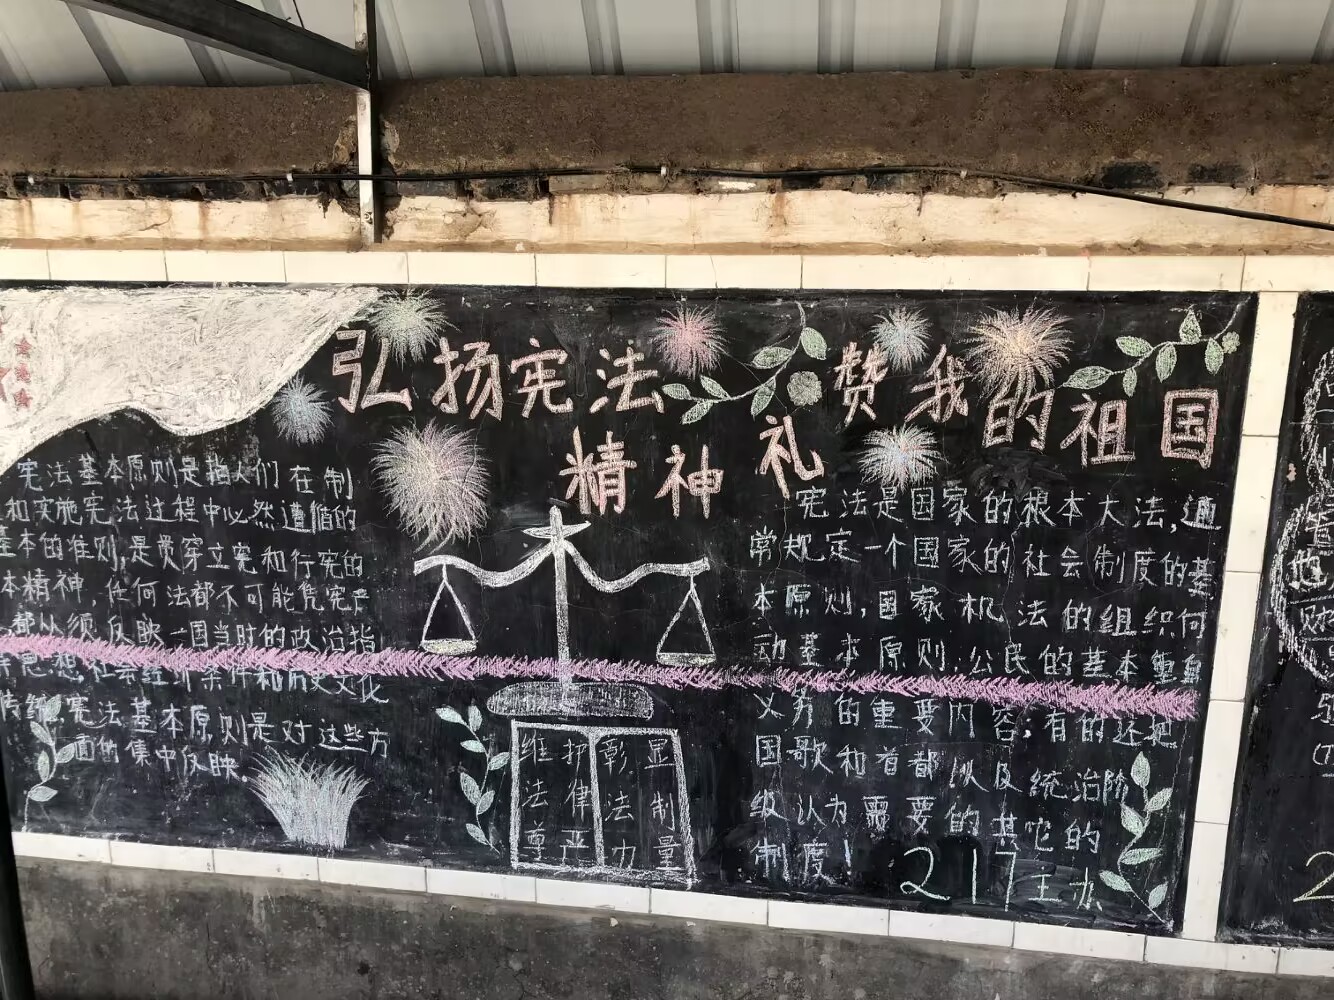 弘扬宪法
精神
礼赞我的祖国
宪法基本原则是指人们在制
和实施宪法过程中必然遵循的
基本的准则,是贯穿立宪和行宪的
本精神,任何法都不可能凭宪产
都从须反映一国当时的政治指
思想社会经济条件和历史文化
传统宪法基本原则是对这些方
面的集中反映.
维护
法律
尊严
彰显
法制
力量
宪法是国家的根本大法,通
常规定一个国家的社会制度的基
本原则,国家机法的组织何
动基本原则.公民的基本重
义务的重要内容;有的还把
国歌和首都以及统治阶
级认为需要的其它的
制度!
217主办